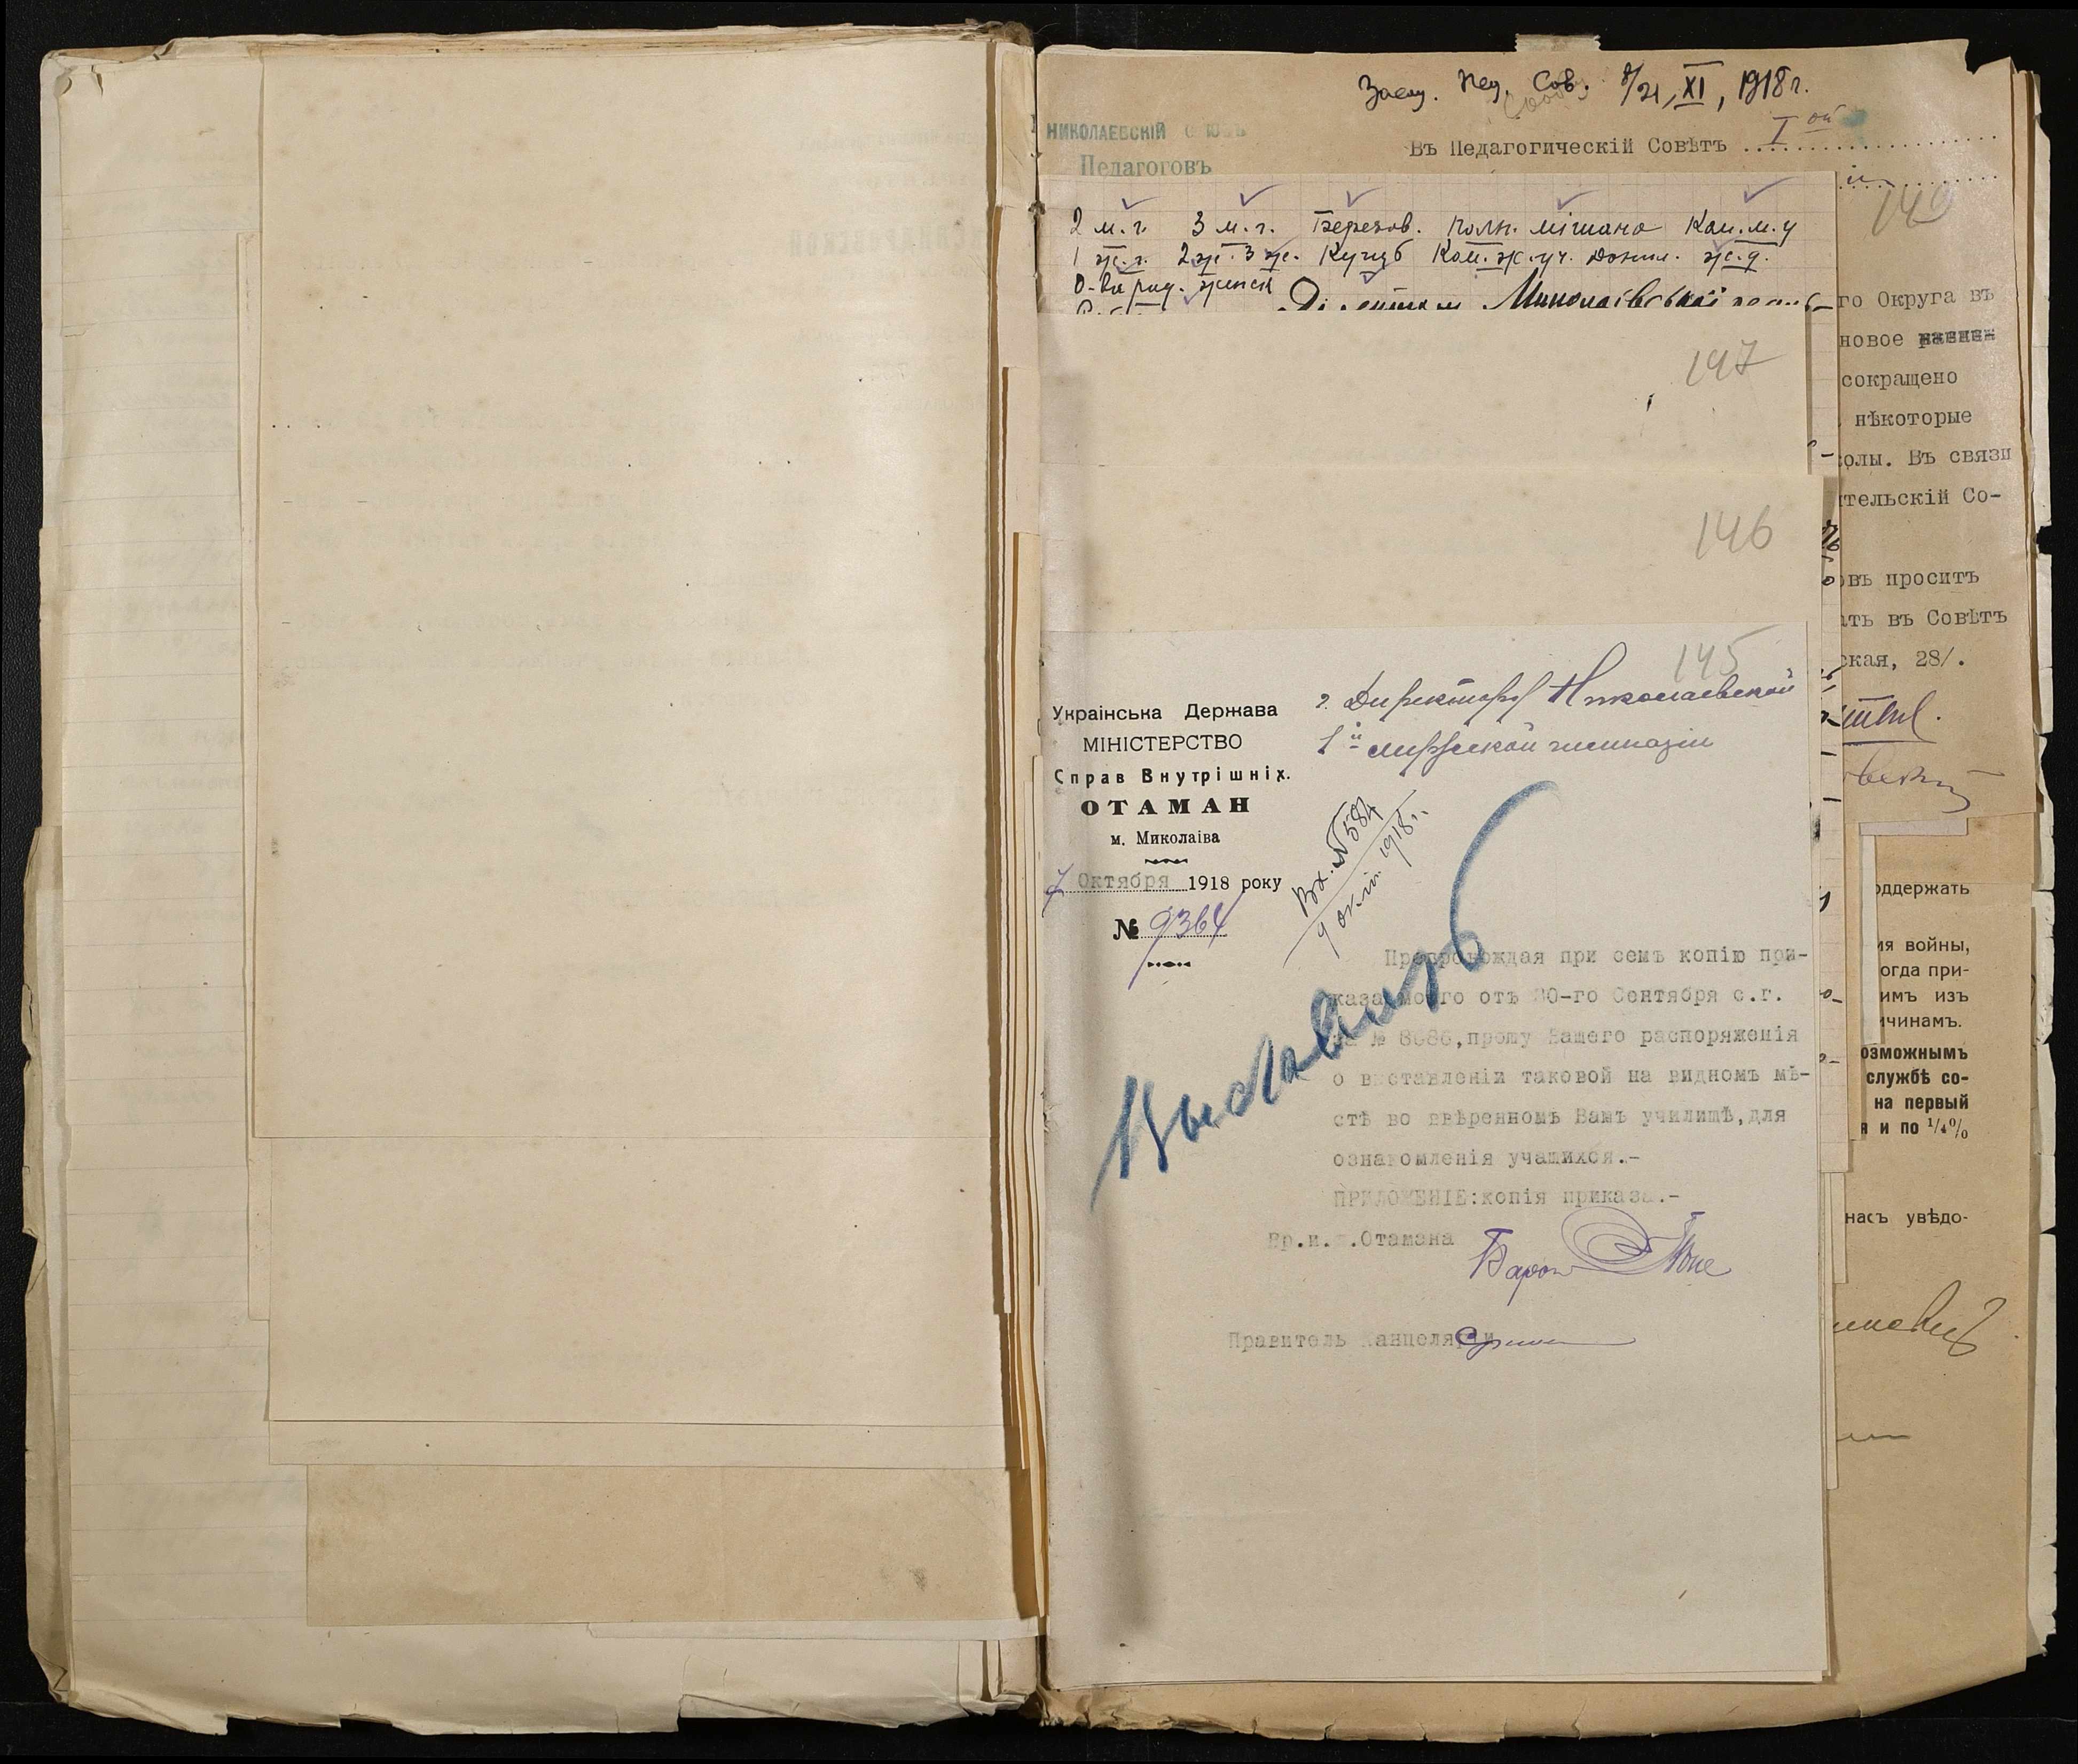 Засѣд. Пед. Сов. 8/21, XI, 1918 г.
НИКОЛАЕВСКІЙ СОЮЗЪ
Педагоговъ
Въ Педагогическій Совѣтъ I ой
149
2 м.г. 3 м.г. Березов. полн. мішана Ком. м. у
1 ж.г. 2 ж. 3 ж. Ком. ж. уч. ж.д.
Миколаівськоі
го Округа въ
новое
сокращено
нѣкоторые
олы. Въ связи
тельскій Со-
147
146
овъ проситъ
ать въ Совѣтъ
ская, 28/.
145
Українська Держава
МІНІСТЕРСТВО
Справ Внутрішніх.
ОТАМАН
м. Миколаіва
7 Октября 1918 року
№ 9364
г. Директору Николаевской
1й мужской гимназіи
Вх. № 584
9 окт. 1918 г.
Препровождая при семъ копію при-
каза моего отъ 30-го Сентября с.г.
за № 8686, прошу Вашего распоряженія
о выставленіи таковой на видномъ мѣ-
стѣ во ввѣренномъ Вамъ училищѣ, для
ознакомленія учащихся.-
ПРИЛОЖЕНІЕ: копія приказа.-
Вр.и.д.Отамана Барон
Правитель Канцеляріи
Выставить
оддержать
ія войны,
огда при-
имъ изъ
ичинамъ.
озможнымъ
службѣ со-
на первый
я и по 1/4%
насъ увѣдо-